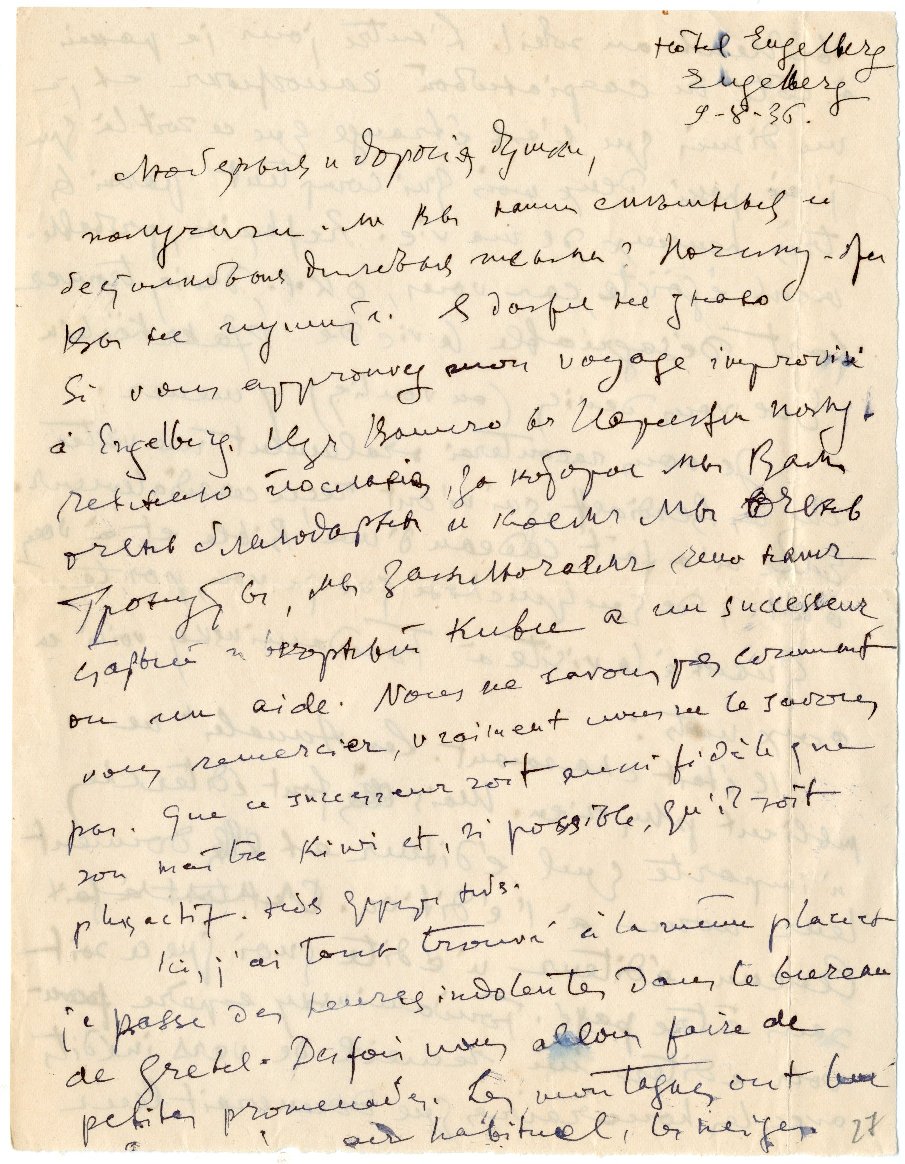 Hôtel Engelberg
Engelberg
9-8-36.
Любезные и дорогие душки,
получили-ли Вы наши смешные и
безтолковыя письма? Почему-бы
Вы не пишите. Я даже не знаю
si vous approuvez mon voyage improvisé
à Engelberg. Из Вашего
послания, за которое мы Вам
очень благодарны и коем мы очень
тронуты, мы заключаем что наш
старый и Киви a un successeur
ou un aide. Nous ne savons pas comment
vous remercier, vraiment nous ne le savons
pas. Que ce successeur soit aussi fidèle que
son maître Kiwi et, si possible, qu'il soit
plus actif.
Ici, j'ai tout trouvé à la même place et
je passe des heures indolentes dans le bureau
de Gretel. Desfois nous allons faire de
petites promenades. Les montagnes ont
air habituel, les neiges
27